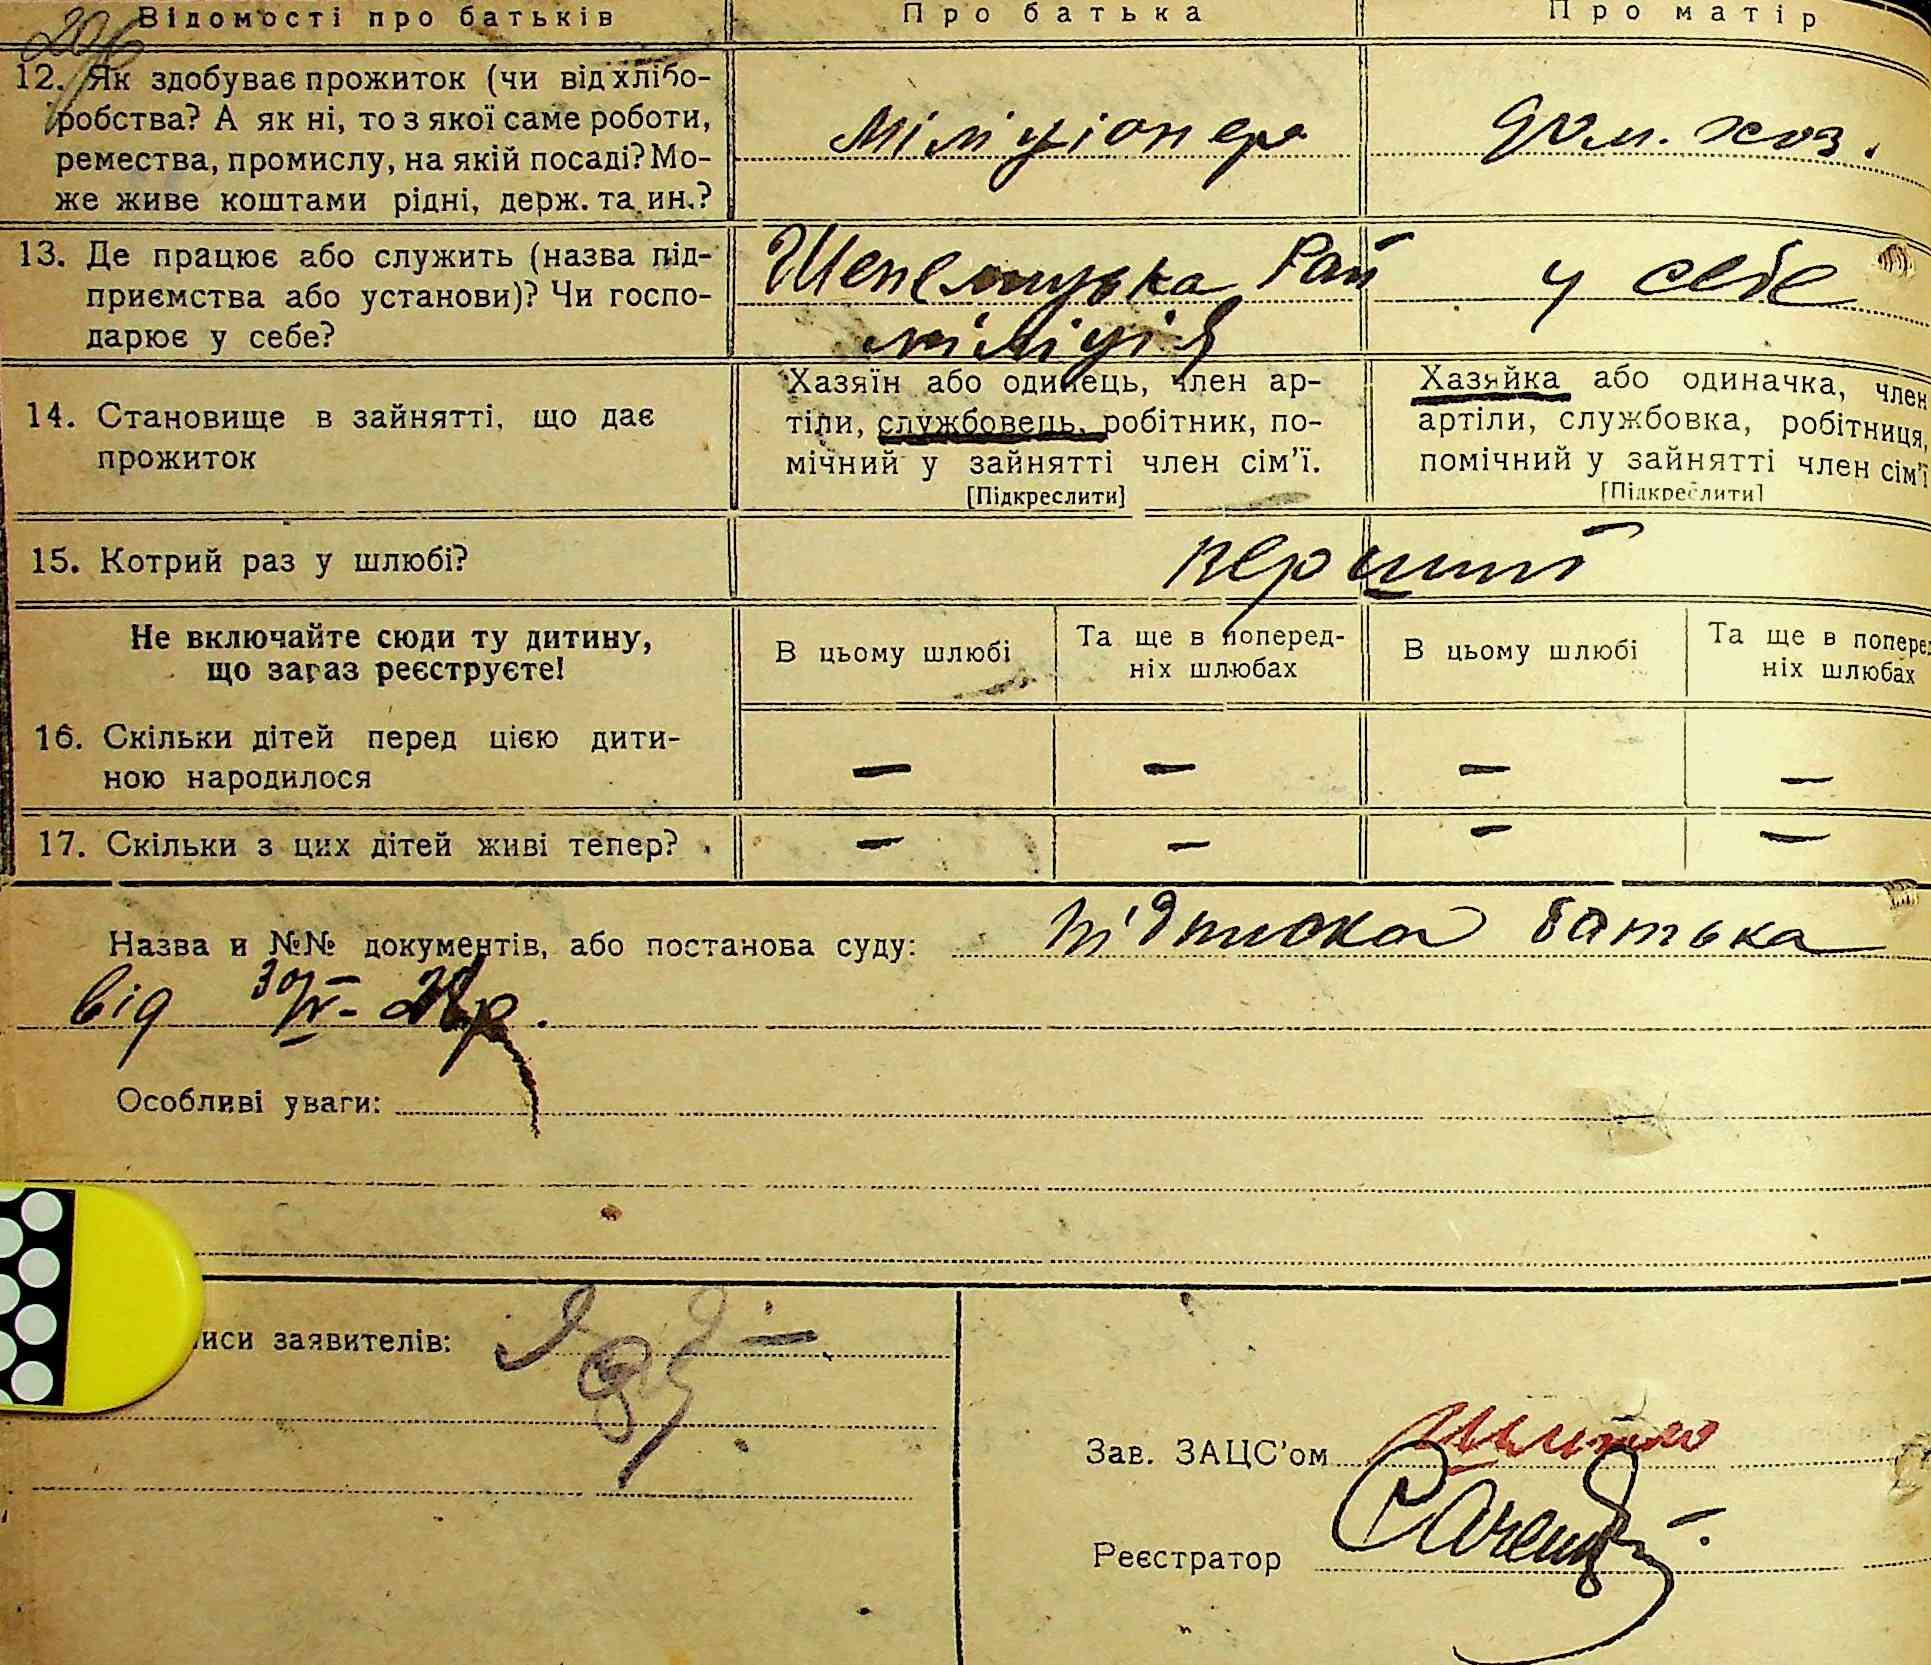 Відомості про батьків Про батька Про матір
12. Як здобуває прожиток (чи від хлібо-
робства? А як ні, то з якої саме роботи,
ремества, промислу, на якій посаді? Мо-
же живе коштами рідні, держ. та ин.?
Міліціонер
дом. хоз.
13. Де працює або служить (назва під-
приємства або установи)? Чи госпо-
дарює у себе?
Рай
міліція
у себе
14. Становище в зайнятті, що дає
прожиток
Хазяїн або одинець, член ар-
тіли, службовець, робітник, по-
мічний у зайнятті член сім'ї.
[Підкреслити]
Хазяйка або одиначка, член
артіли, службовка, робітниця,
помічний у зайнятті член сім'ї
[Підкреслити]
15. Котрий раз у шлюбі?
перший
Не включайте сюди ту дитину,
що зараз реєструєте!
В цьому шлюбі
Та ще в поперед-
ніх шлюбах
В цьому шлюбі
Та ще в поперед
ніх шлюбах
16. Скільки дітей перед цією дити-
ною народилося
— — — —
17. Скільки з цих дітей живі тепер?
— — — —
Назва и №№ документів, або постанова суду: підписка батька
від
Особливі уваги:
иси заявителів:
Зав. ЗАЦС'ом
Реєстратор